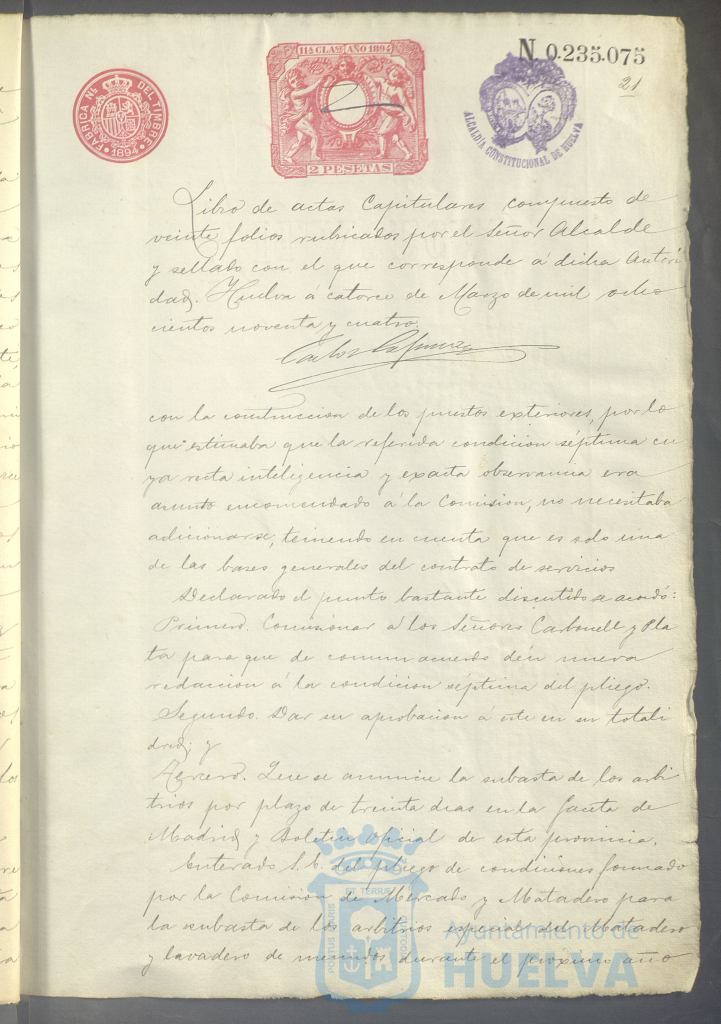 11ª CLASE AÑO 1894
2 PESETAS
FABRICA NL. DEL TIMBRE
1894
N. 0.235.075
21
ALCALDÍA CONSTITUCIONAL DE HUELVA
Libro de actas Capitulares compuesto de
veinte folios rubricados por el Señor Alcalde
y sellado con el que corresponde á dicha Autori
dad. Huelva á catorce de Marzo de mil ocho
cientos noventa y cuatro.
Carlos
con la construccion de los puestos exteriores, por lo
que estimaba que la referida condicion séptima cu
ya recta inteligencia y exacta observancia era
asunto encomendado á la Comision, no necesitaba
adicionarse, teniendo en cuenta que es solo una
de las bases generales del contrato de servicios
Declarado el punto bastante discutido se acordó:
Primero. Comisionar a los Señores Carbonell y Pla
ta para que de comun acuerdo dén nueva
redaccion á la condicion séptima del pliego.
Segundo. Dar su aprobacion á este en su totali
dad; y
Tercero. Que se anuncie la subasta de los arbi
trios por plazo de treinta dias en la Gaceta de
Madrid y Boletin oficial de esta provincia.
Enterado S.E. del pliego de condiciones formado
por la Comision de Mercado y Matadero para
la subasta de los arbitrios especial del Matadero
y lavadero de menudos durante el proximo año
PORTUS MARIS ET TERRE CUSTODIA
Ayuntamiento de
HUELVA